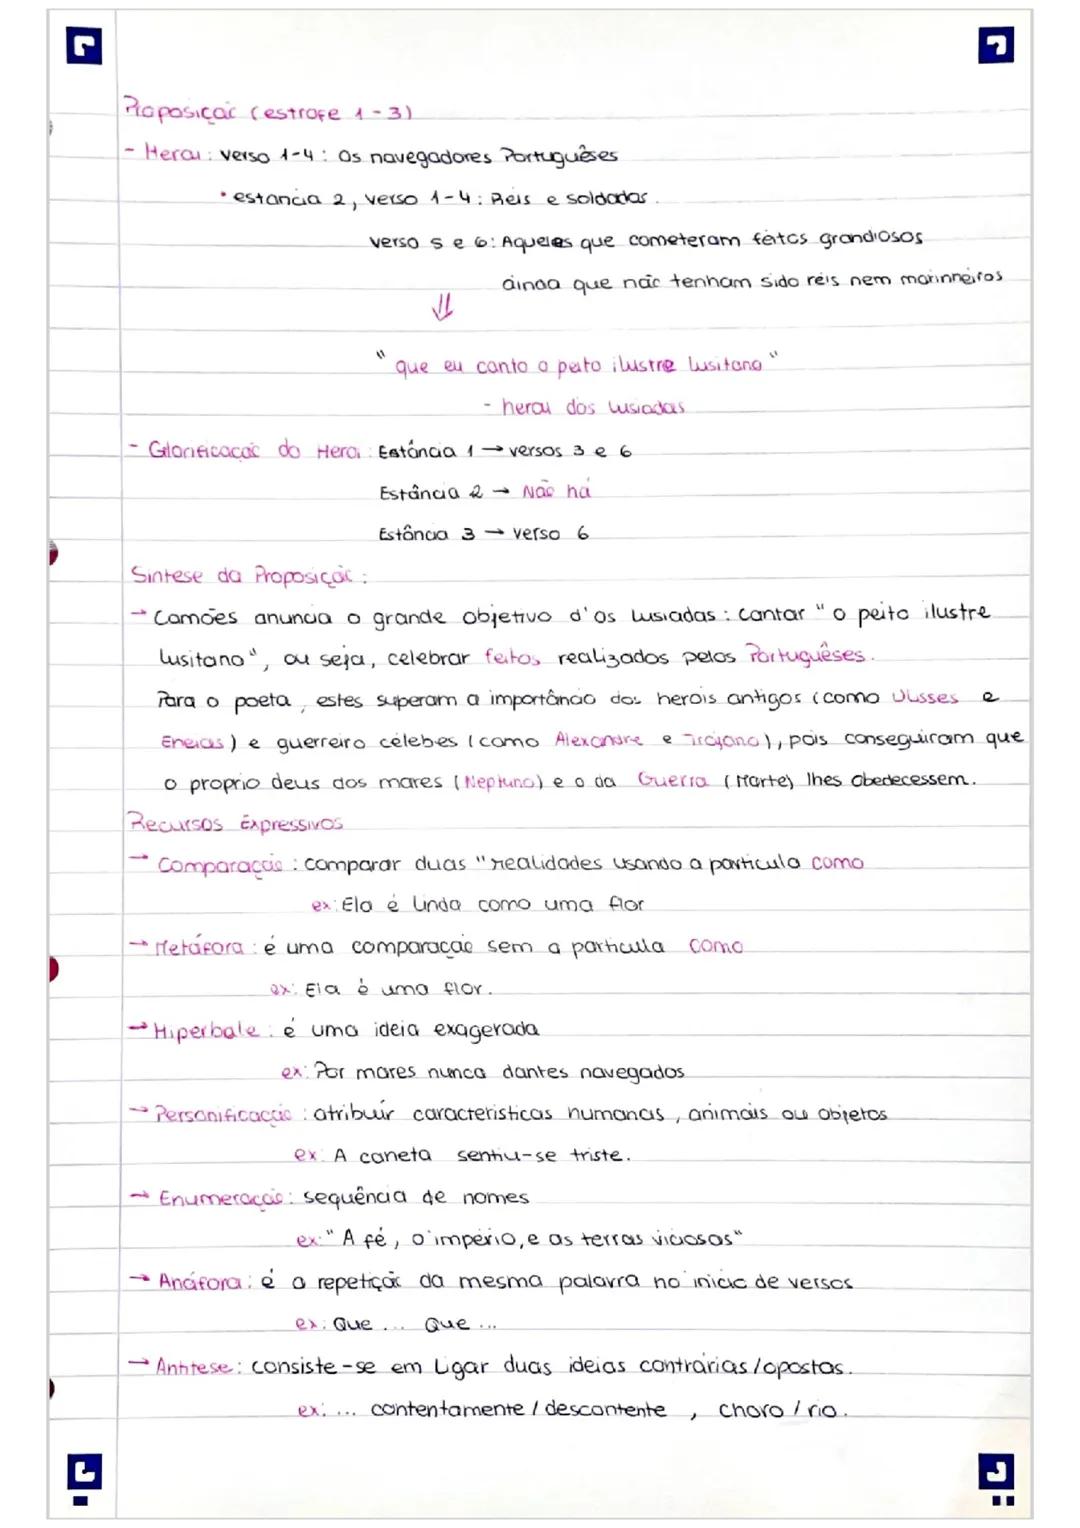 Proposição (estrofe 1-3)
- Herói: verso 1-4: Os navegadores Portuguêses
• estancia 2, verso 1-4: Reis e soldados.
verso 5 e 6: Aqueles que cometeram feitos grandiosos
ainda que não tenham sido reis nem marinheiros
⇓
"que eu canto o peito ilustre lusitano"
- herói dos lusiadas
- Glorificação do Herói: Estância 1 → versos 3 e 6
Estância 2 → Não há
Estância 3 → verso 6
Sintese da Proposição:
→ Camões anuncia o grande objetivo d'os lusiadas: cantar "o peito ilustre
lusitano", ou seja, celebrar feitos realizados pelos Portuguêses.
Para o poeta, estes superam a importância dos herois antigos (como Ulisses e
Eneias) e guerreiro célebes (como Alexandre e Trajano), pois conseguiram que
o proprio deus dos mares (Neptuno) e o da Guerra (Marte) lhes obedecessem.
Recursos Expressivos
→ Comparação: comparar duas "realidades usando a particula como
ex: Ela é linda como uma flor
→ Metáfora: é uma comparação sem a particula como
ex: Ela é uma flor.
→ Hiperbole: é uma ideia exagerada
ex: Por mares nunca dantes navegados
→ Personificação: atribuir caracteristicas humanas, animais ou objetos
ex: A caneta sentiu-se triste.
→ Enumeração: sequência de nomes
ex: "A fé, o império, e as terras viciosas"
→ Anáfora: é a repetição da mesma palavra no inicio de versos
ex: Que ... Que ...
→ Antitese: consiste-se em ligar duas ideias contrárias/opostas.
ex: ... contentamente / descontente , choro / rio.